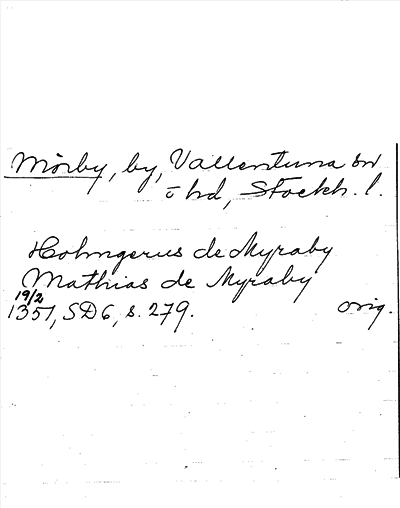 Mörby, by, Vallentuna sn
o hd, Stockh. l.
Holmgerus de Myraby
Mathias de Myraby
19/2
1351, SD6, s. 279. orig.